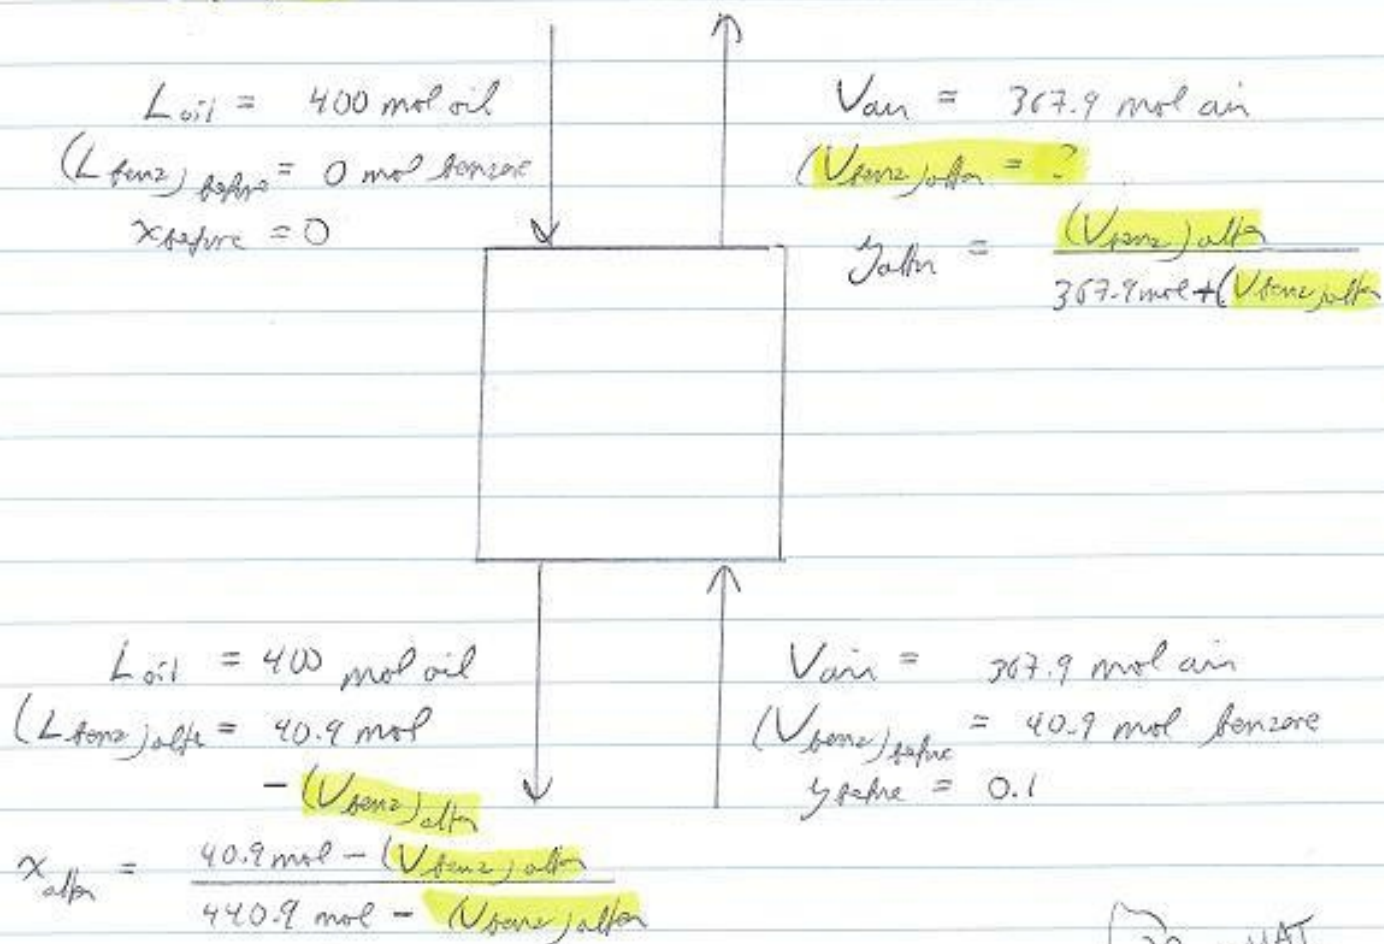 L oil = 400 mol oil
(L benz) before = 0 mol benzene
x before = 0
V air = 367.9 mol air
(V benz) after = ?
y after = (V benz) after
367.9 mol + (V benz) after
L oil = 400 mol oil
(L benz) after = 40.9 mol
- (V benz) after
x after = 40.9 mol - (V benz) after
440.9 mol - (V benz) after
V air = 367.9 mol air
(V benz) before = 40.9 mol benzene
y before = 0.1